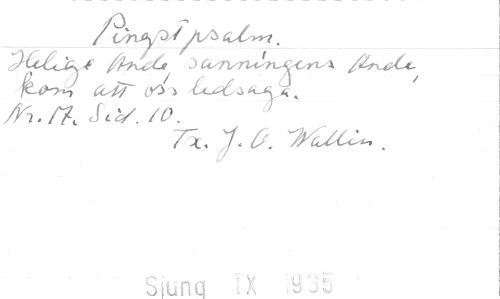 Pingstpsalm.
Helige Ande, sanningens Ande,
kom att oss ledsaga.
Nr. 17. Sid. 10.
Tx. J. O. Wallin.
Sjung IX 1935